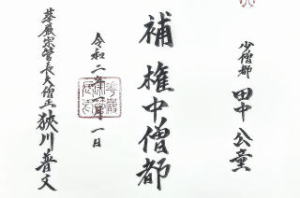 少僧都 田中公童
補権中僧都
令和二年一月一日
華厳宗管長大僧正 狹川普文